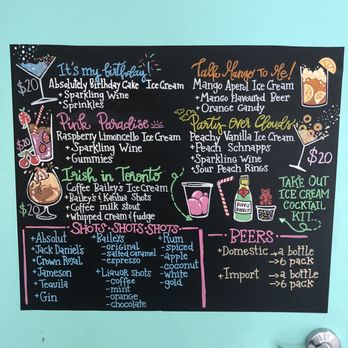 It's my birthday!
$20
Absolutely Birthday Cake Ice Cream
+ Sparkling Wine
+ Sprinkles
Pink Paradise
$20
Raspberry Limoncello Ice Cream
+ Sparkling Wine
+ Gummies
Irish in Toronto
Coffee Bailey's Ice Cream
+ Baileys & Kahlua Shots
+ Coffee milk stout
+ Whipped cream & fudge
$20
Talk Mango to Me!
Mango Aperol Ice Cream
+ Mango Flavoured Beer
+ Orange Candy
Party over Clouds
Peachy Vanilla Ice Cream
+ Peach Schnapps
+ Sparkling wine
+ Sour Peach Rings
$20
TAKE OUT
ICE CREAM
COCKTAIL
KIT
SHOTS·SHOTS·SHOTS
+ Absolut
+ Jack Daniel's
+ Crown Royal
+ Jameson
+ Tequila
+ Gin
+ Baileys
- original
- salted caramel
- espresso
+ Liquor Shots
- coffee
- mint
- orange
- chocolate
+ Rum
- spiced
- apple
- coconut
- white
- gold
BEERS
+ Domestic → a bottle
→ 6 pack
+ Import → a bottle
→ 6 pack